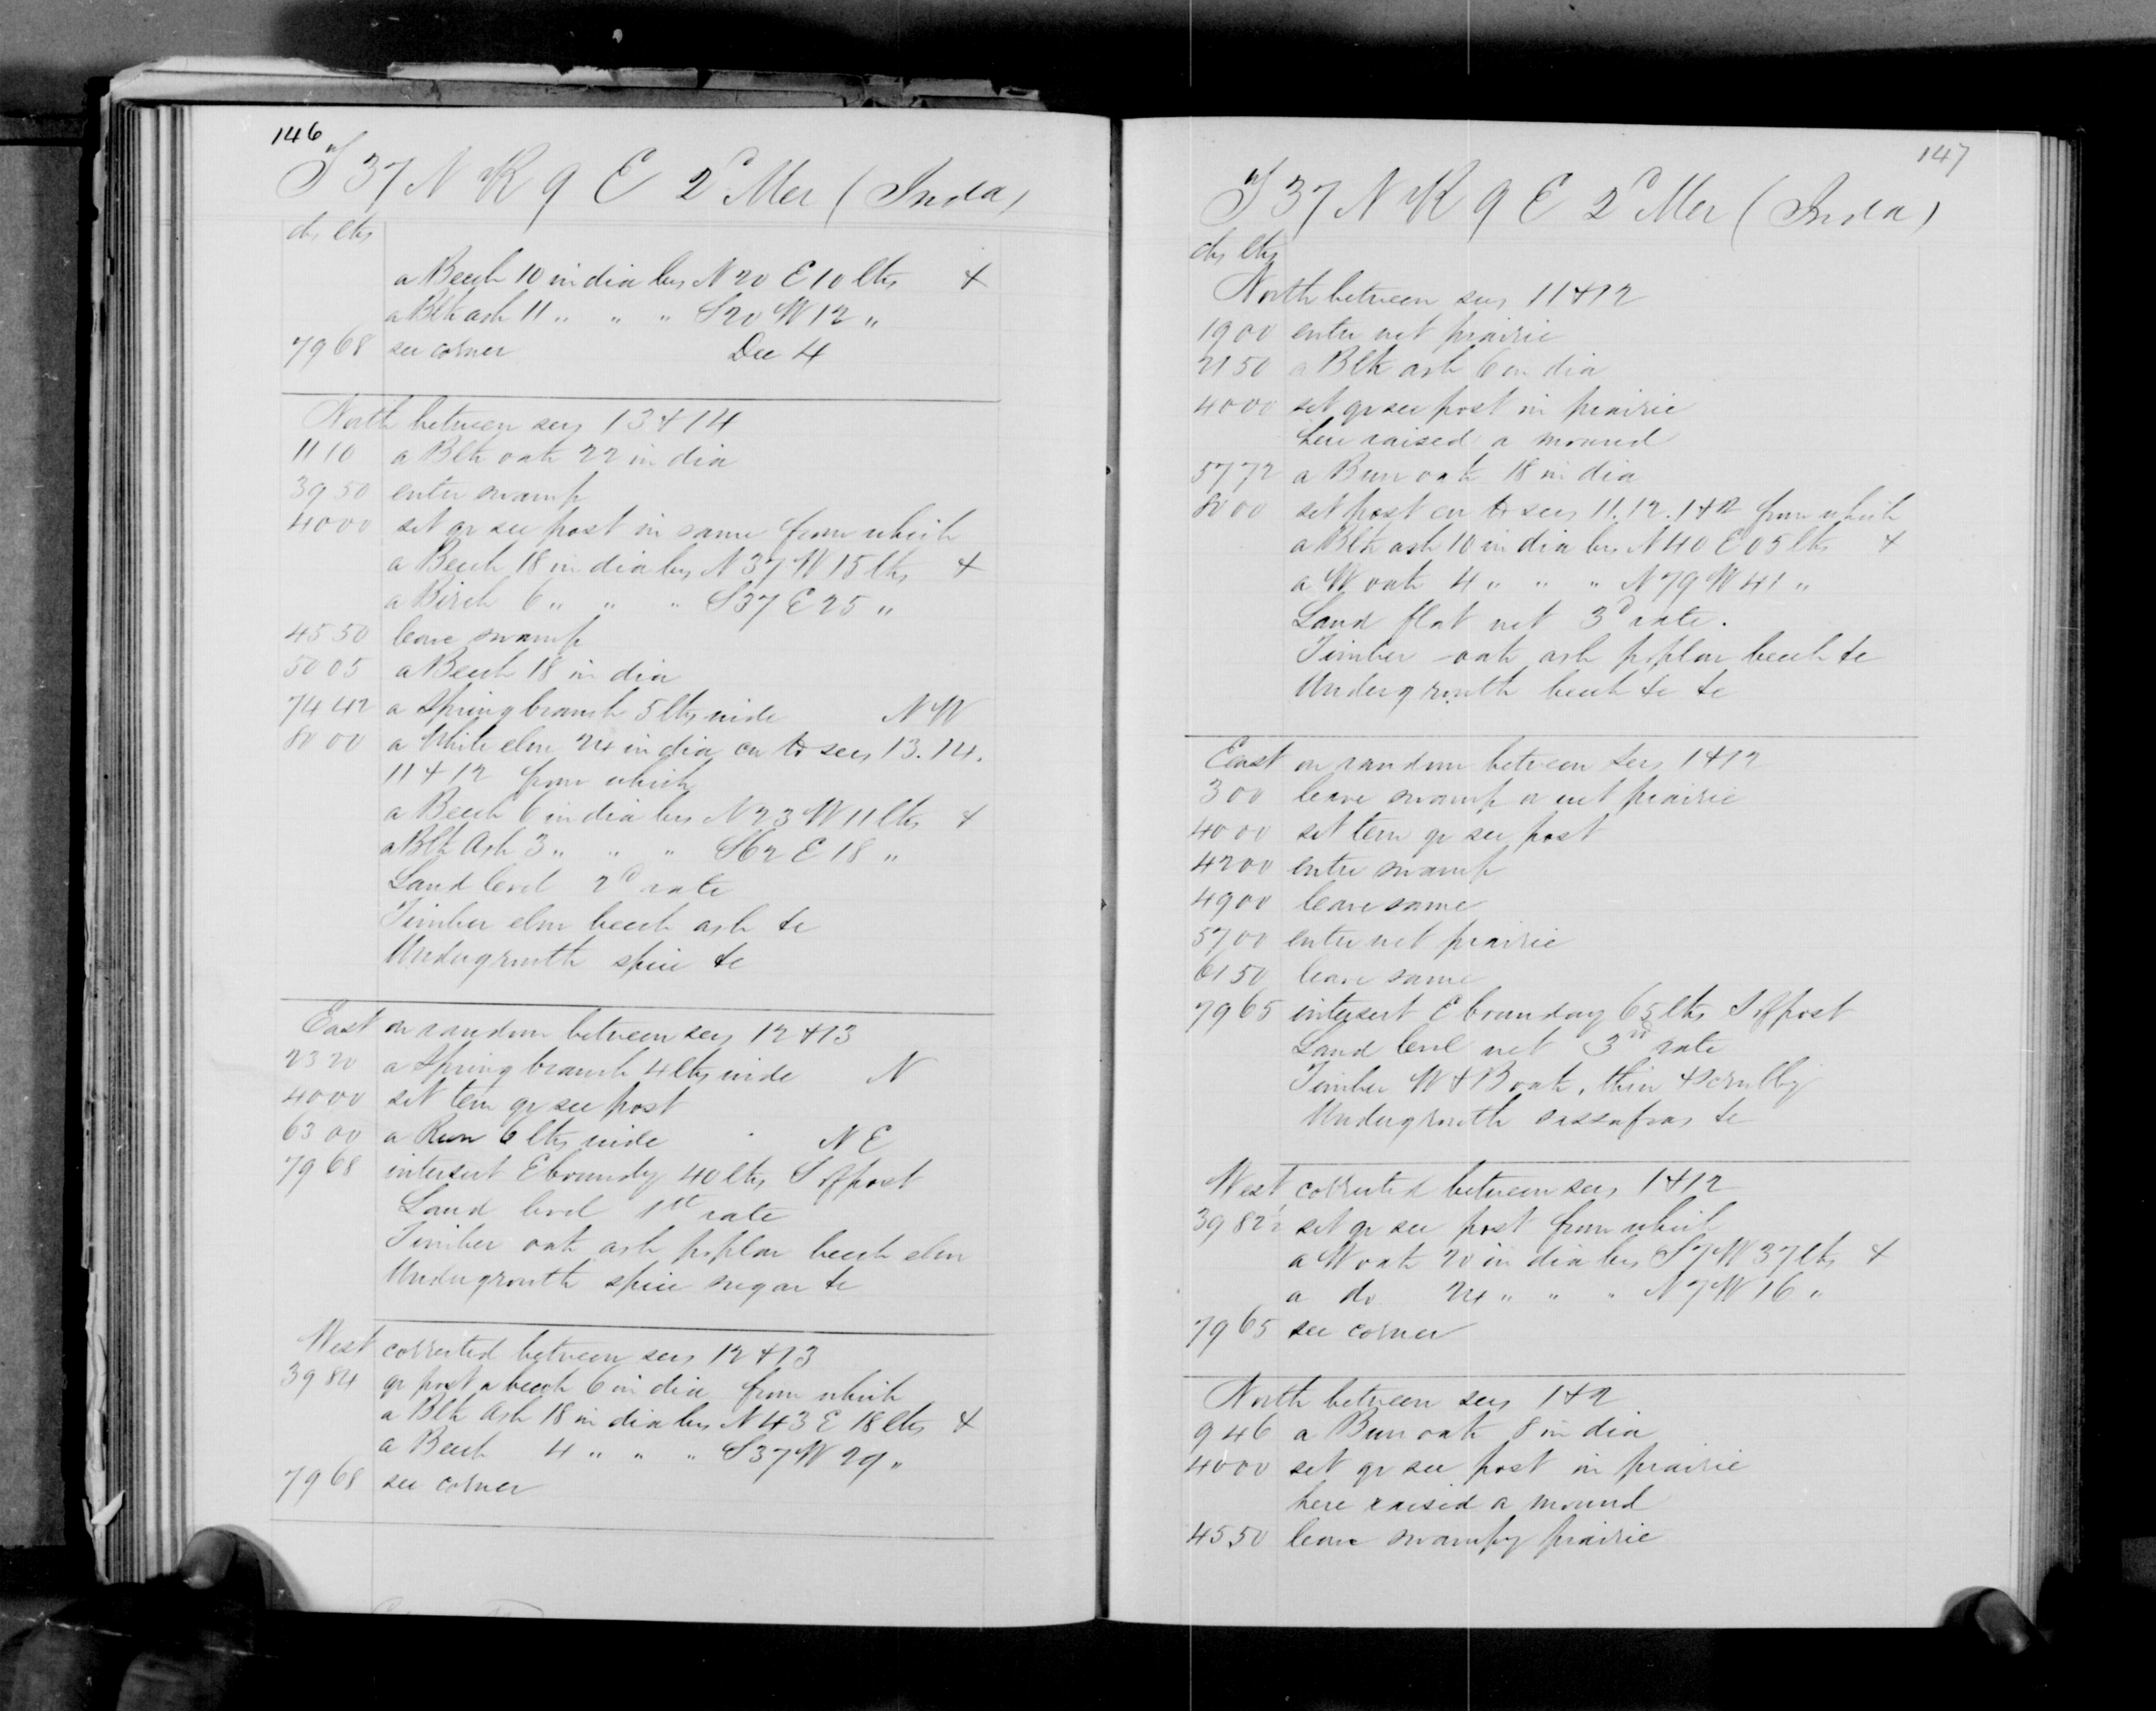 146
T 37 N R 9 E 2d Mer (Inda)
chs lks
a Beech 10 in dia brs N 20 E 10 lks &
a Blk ash 11 " " " S 20 W 12 "
79 68 sec corner Dec 4
North between secs 13 & 14
11 10 a Blk oak 22 in dia
39 50 enter swamp
40 00 set qr sec post in same from which
a Beech 18 in dia brs N 37 W 15 lks &
a Birch 6 " " " S 37 E 25 "
45 50 leave swamp
50 05 a Beech 18 in dia
74 42 a Spring branch 5 lks wide N W
80 00 a White elm 24 in dia cor to secs 13. 14.
11 & 12 from which
a Beech 6 in dia brs N 23 W 11 lks &
a Blk Ash 3 " " " S 62 E 18 "
Land level 2d rate
Timber elm beech ash &c
Undergrowth spice &c
East on random between secs 12 & 13
23 20 a Spring branch 4 lks wide N
40 00 set tem qr sec post
63 00 a Run 6 lks wide N E
79 68 intersect E boundy 40 lks S of post
Land level 1st rate
Timber oak ash poplar beech elm
Undergrowth spice sugar &c
West corrected between secs 12 & 13
39 84 qr post a beech 6 in dia from which
a Blk Ash 18 in dia brs N 43 E 18 lks &
a Beech 4 " " " S 37 W 29 "
79 68 sec corner
147
T 37 N R 9 E 2d Mer (Inda)
chs lks
North between secs 11 & 12
19 00 enter wet prairie
21 50 a Blk ash 6 in dia
40 00 set qr sec post in prairie
here raised a mound
57 72 a Burr oak 18 in dia
80 00 set post cor to secs 11. 12. 1 & 2 from which
a Blk ash 10 in dia brs N 40 E 05 lks &
a W oak 4 " " " N 79 W 41 "
Land flat wet 3d rate.
Timber oak ash poplar beech &c
Undergrowth beech &c &c
East on random between Secs 1 & 12
3 00 leave swamp or wet prairie
40 00 set tem qr sec post
42 00 enter swamp
49 00 leave same
57 00 enter wet prairie
61 50 leave same
79 65 intersect E boundary 65 lks S of post
Land level wet 3rd rate
Timber W & B oak, thin & scrubby
Undergrowth sassafras &c
West corrected between secs 1 & 12
39 82½ set qr sec post from which
a W oak 20 in dia brs S 7 W 37 lks &
a do 24 " " " N 7 W 16 "
79 65 sec corner
North between secs 1 & 2
9 46 a Burr oak 8 in dia
40 00 set qr sec post in prairie
here raised a mound
45 50 leave swampy prairie